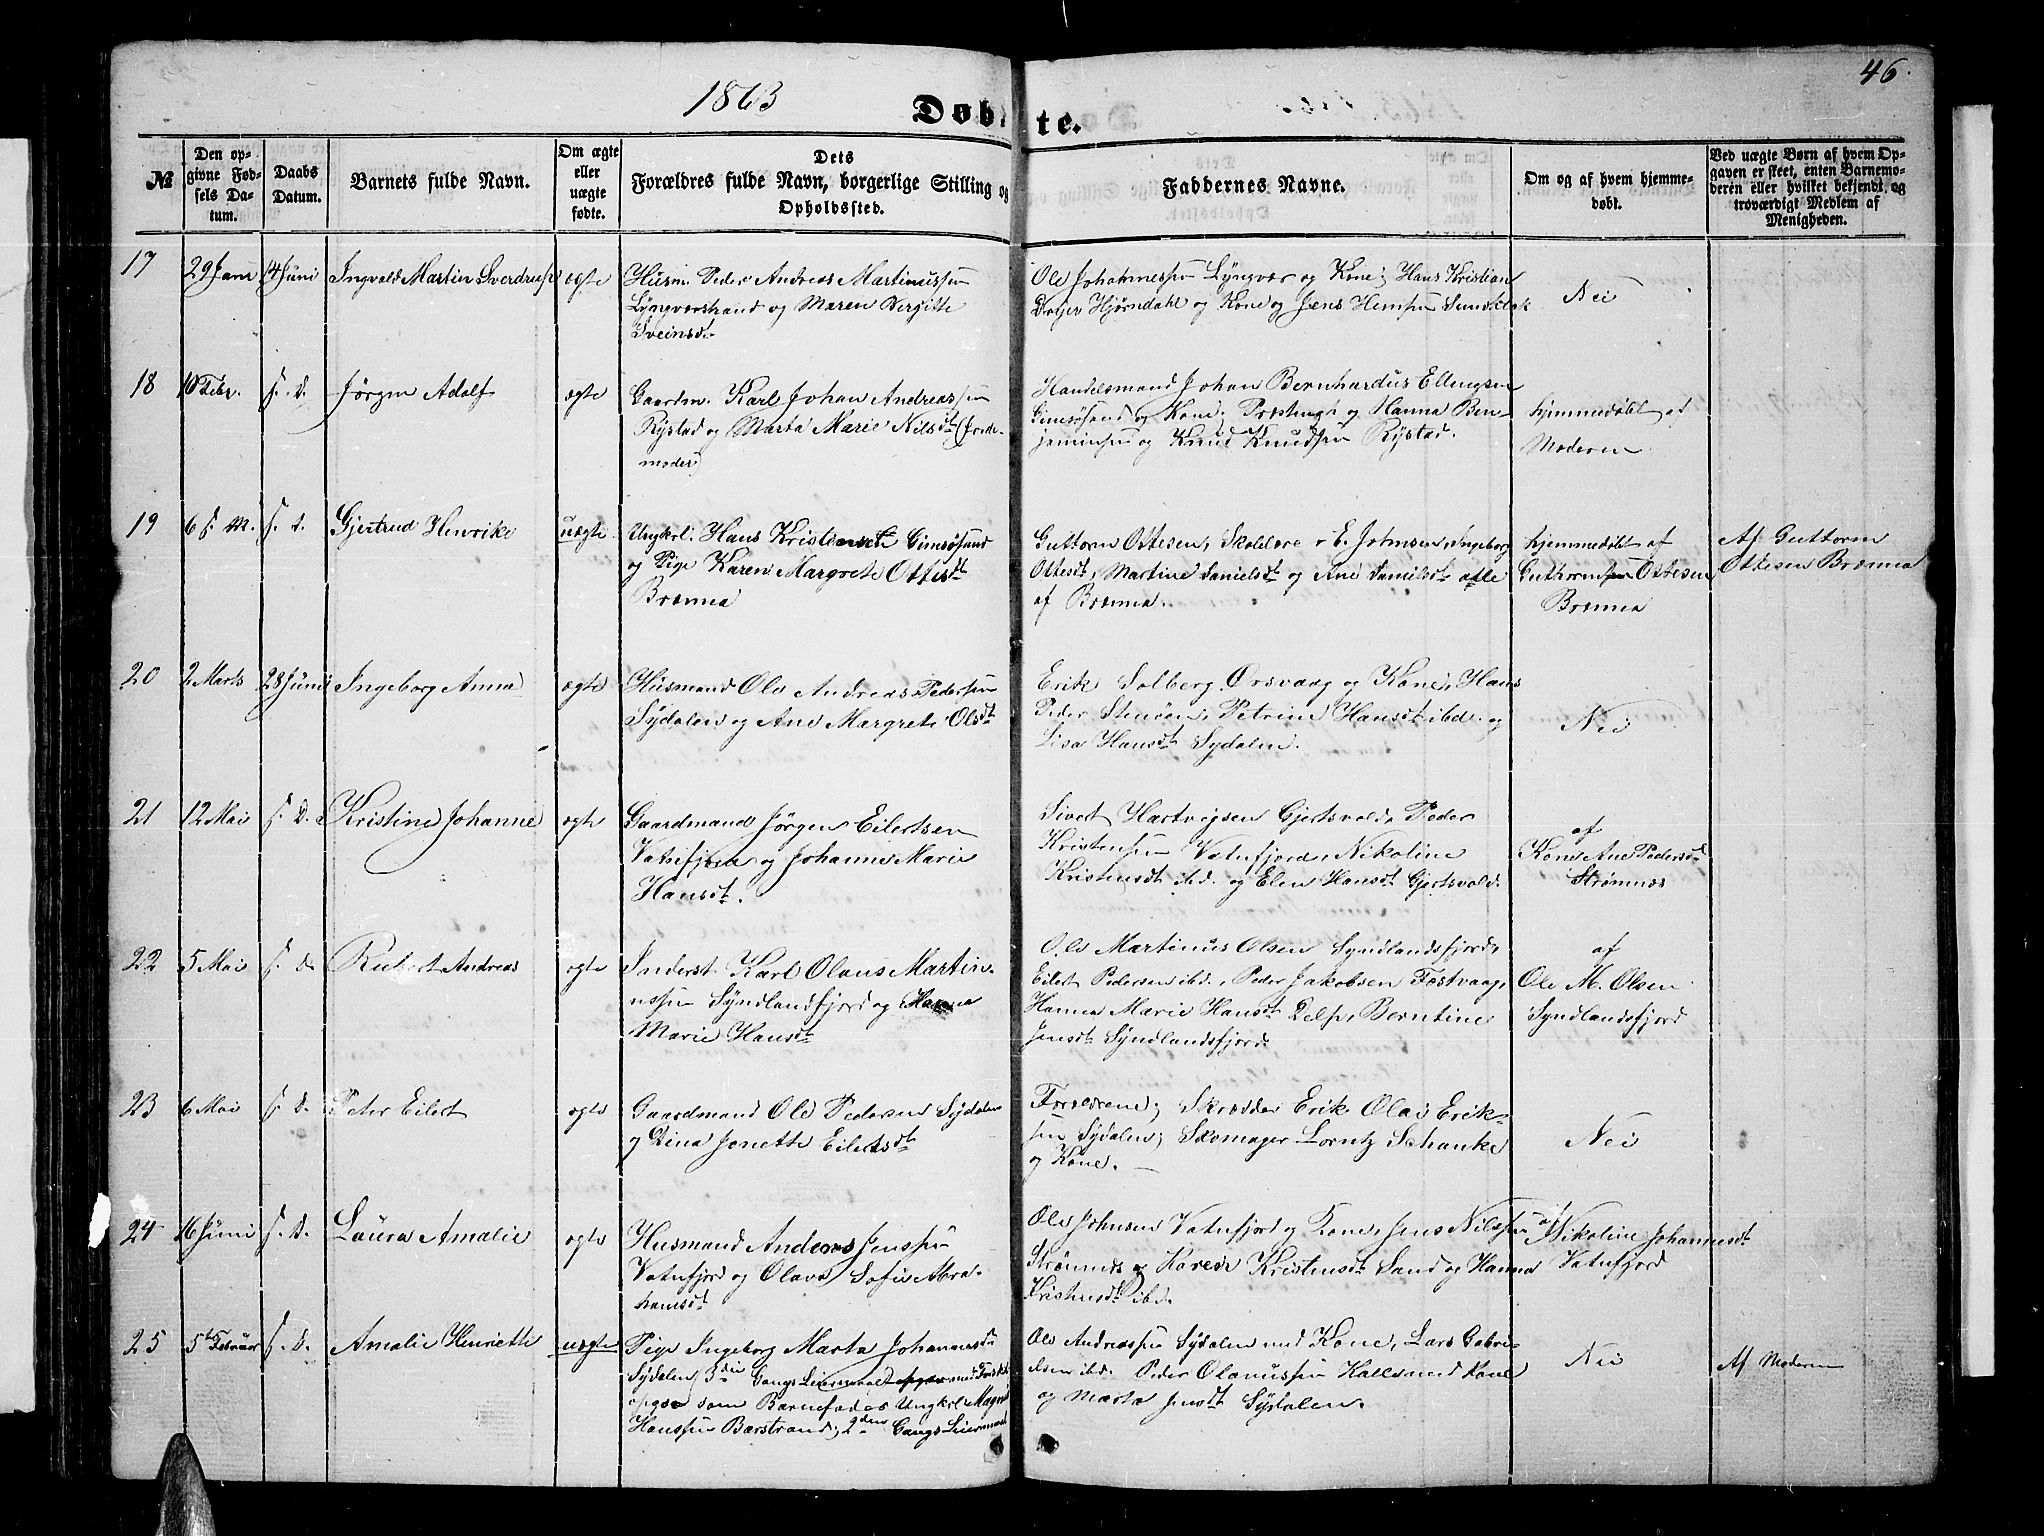 1863
46.
Døbte.
№
Den op-
givne Fød-
sels Da-
tum.
Daabs
Datum.
Barnets fulde Navn.
Om ægte
eller
uægte
fødte.
Dets
Forældres fulde Navn, borgerlige Stilling og
Opholdssted.
Faddernes Navne.
Om og af hvem hjemme-
døbt.
Ved uægte Børn af hvem Op-
gaven er skeet, enten Barnemo-
deren eller hvilket bekjendt og
troværdigt Medlem af
Menigheden.
17
29 Janr
14 Juni
Ingvald Martin Sverdrup
ægte
Husm. Peder Andreas Martinussen
Lyngværstrand og Maren Birgitte
Sveinsdt
Ole Johannessen Lyngvær og Kone; Hans Kristian
Dreyer Hjørndahl og Kone og Jens Hemsen Sundklak
Nei
18
10 Febr.
s. D.
Jørgen Adolf
ægte
Gaardm. Karl Johan Andreassen
Rystad og Marta Marie Nilsdt (Jorde-
moder)
Handelsmand Johan Bernhardus Ellingsen
Gimsøsand og Kone; og Hanna Ben-
jaminsen og Knud Knudsen Rystad.
hjemmedøbt af
Moderen
19
6 s. M.
s. D.
Gjertrud Henrike
uægte
Ungkrl. Hans Kristensen Gimsøsand
og Pige Karen Margrete Ottesdt
Brenna
Guttorm Ottesen, Skolelærer E. Johnsen, Ingeborg
Ottesdt, Martine Danielsdt og Ane Danielsdt alle
af Brenna.
hjemmedøbt af
Guthorm Ottesen
Brenna
Af Guttorm
Ottesen Brenna
20
2 Marts
28 Juni
Ingeborg Anna
ægte
Husmand Ole Andreas Pedersen
Sydalen og Ane Margrete Olsdt
Erik Solberg Ørsvaag og Kone, Hans
Peder Stenøen, Petrine Hansdt ibd. og
Lisa Hansdt Sydalen.
Nei
21
12 Mai
s. D.
Kristine Johanne
ægte
Gaardmand Jørgen Eilertsen
Vatnfjord og Johanna Marie
Hansdt.
Sivert Hartvigsen Gjertsvold, Peder
Kristensen Vatnfjord, Nikoline
Kristensdt ibd. og Elen Hansdt Gjertsvold.
af
Kone Ane Pedersdt
Strømnæs
22
5 Mai
s. D.
Rikart Andreas
ægte
Inderst Karl Olaus Martin-
ussen Syndlandsfjord og Hanna
Marie Hansdt
Ole Martinus Olsen Syndlandsfjord,
Eilert Pedersen ibd., Peder Jakobsen Festvaag,
Hanna Marie Hansdt Delp, Berntine
Jensdt Syndlandsfjord.
af
Ole M. Olsen
Syndlandsfjord
23
6 Mai
s. D.
Peter Eilert
ægte
Gaardmand Ole Pedersen Sydalen
og Dina Jonette Eilertsdt
Forældrene; Skrædder Erik Olai Erik-
sen Sydalen; Skomager Lorntz Schanke
og Kone.
Nei
24
16 Juni
s. D.
Laura Amalie
ægte
Husmand Anders Jenssen
Vatnfjord og Olava Sofie Abra-
hamsdt
Ole Johnsen Vatnfjord og Kone, Jens Nilssen
Strømnæs og Kristensdt Sand og Hanna
Kristensdt ibd.
af
Nikoline Johannesdt
Vatnfjord
25
5te Februar
s. D.
Amalie Henriette
uægte
Pige Ingeborg Marta Johannesdt
Sydalen 3die Gangs Leiermaal
opgav som Barnefader Ungkrl Magnus
Hanssen Barstrand; 2den Gangs Leiermaal
Ole Andreassen Sydalen med Kone, Lars Gabri-
elsen ibd. Peder Olausssen Kalle med Kone
og Marta Jensdt Sydalen.
Nei
Af Moderen